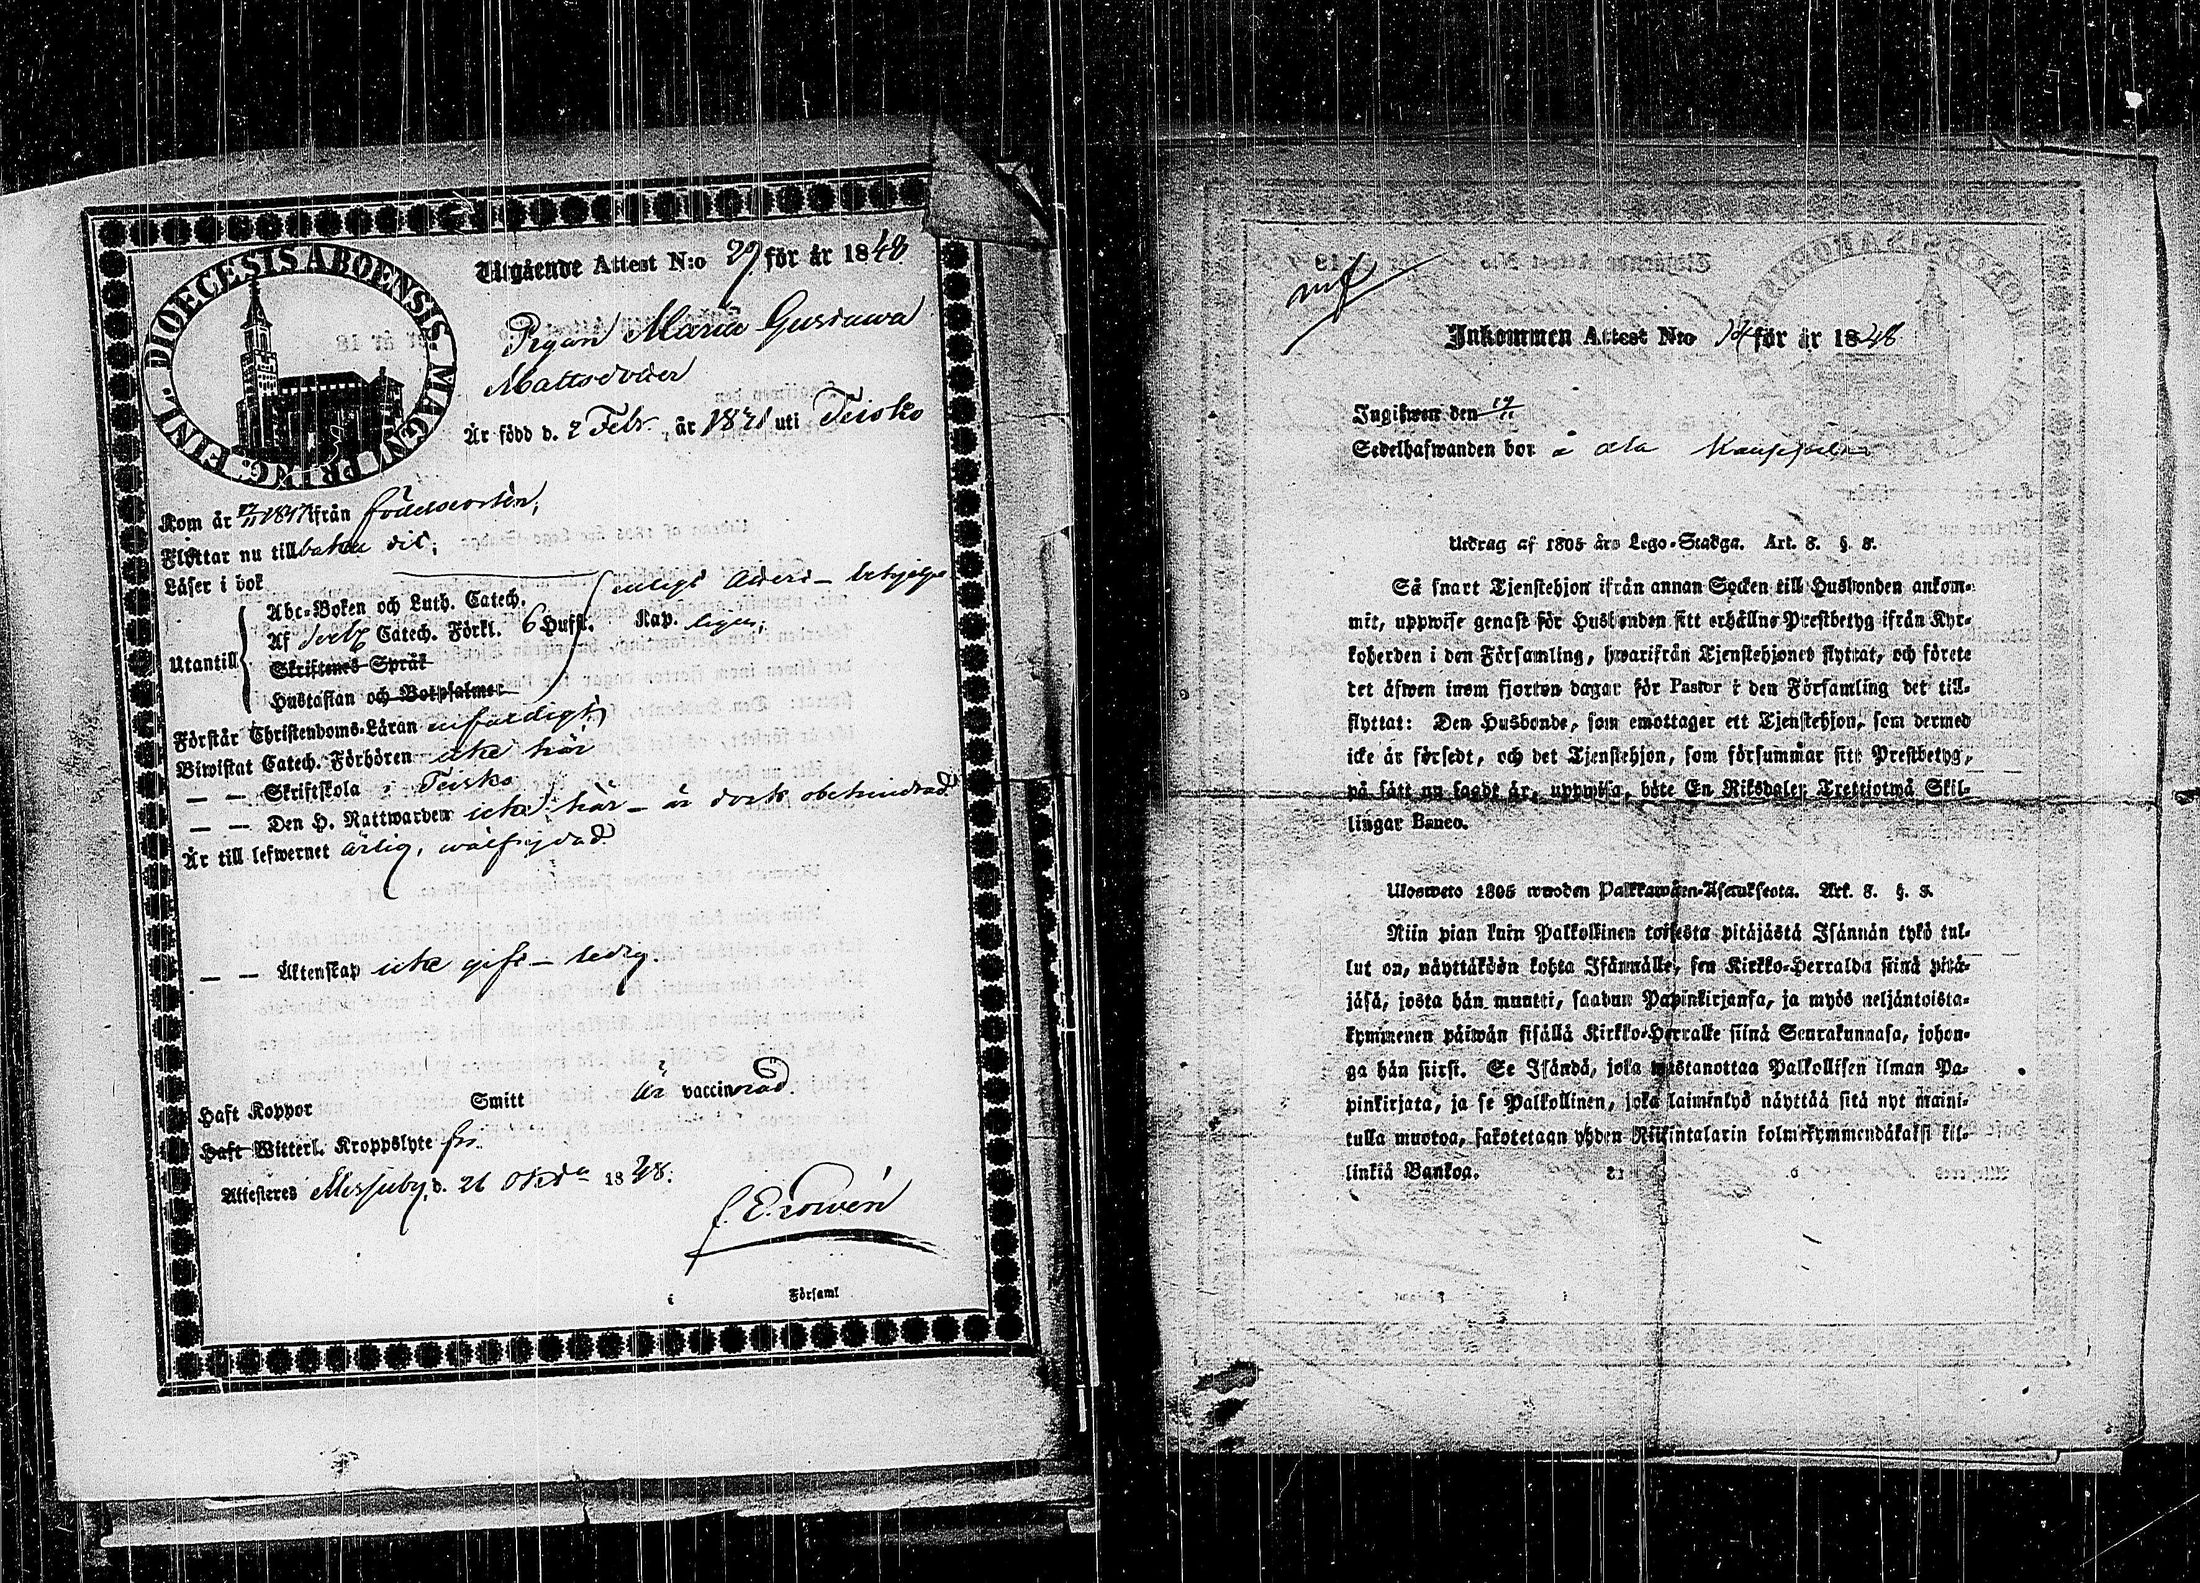 DIOECESIS ABOENSIS MAGN. PRINC. FINL.
Utgående Attest N:o 29 för år 1848
Pigan Maria Gustawa
Mattsdotter
Är född d. 2 Febr. år 1821 uti Teisko
Kom år 1847 ifrån födelseorten;
Flyttar nu till baka dit;
Läser i bok
Abc-Boken och Luth. Catech.
enligt betyg
Af Catech. Förkl. 6 Hufst. Kap.
Utantill
Skriftenes Språk
Hustaflan och Botpsalmer
Förstår Christendoms-Läran
Biwistat Catech. Förhören icke här
— — Skriftskola i Teisko
— — Den H. Nattwarden icke här – är dock obehindrad
Är till lefwernet ärlig, wälfrejdad
— — Äktenskap icke gift – ledig
Haft Koppor Smitt Är vaccinerad.
Haft Witterl. Kroppslyte fri.
Attesteras Messuby, d. 21 1848.
i Församl
Inkommen Attest N:o för år 1848
Ingifwen den
Sedelhafwanden bor å
Utdrag af 1805 års Lego-Stadga. Art. 8. §. 8.
Så snart Tjenstehjon ifrån annan Socken till Husbonden ankom-
mit, uppwise genast för Husbonden sitt erhållne Prestbetyg ifrån Kyr-
koherden i den Församling, hwarifrån Tjenstehjonet flyttat, och förete
det äfwen inom fjorton dagar för Pastor i den Församling det till-
flyttat: Den Husbonde, som emottager ett Tjenstehjon, som dermed
icke är försedt, och det Tjenstehjon, som försummar sitt Prestbetyg,
på sätt nu sagdt är, uppwisa, böte En Riksdaler Trettiotwå Skil-
lingar Banco.
Ulosweto 1805 wuoden Palkkawäen-Asetuksesta. Art. 8. §. 8.
Niin pian kuin Palkollinen toisesta pitäjästä Isännän tykö tul-
lut on, näyttäköön kohta Isännälle, sen Kirkko-Herralda siinä pitä-
jäsä, josta hän muutti, saadun Papinkirjansa, ja myös neljäntoista-
kymmenen päiwän sisällä Kirkko-Herralle siinä Seurakunnasa, johon-
ga hän siirsi. Se Isändä, joka wastanottaa Palkollisen ilman Pa-
pinkirjata, ja se Palkollinen, joka laiminlyö näyttää sitä nyt maini-
tulla muotoa, sakotetaan yhden Riikintalarin kolmekymmendäkaksi kil-
linkiä Bankoa.